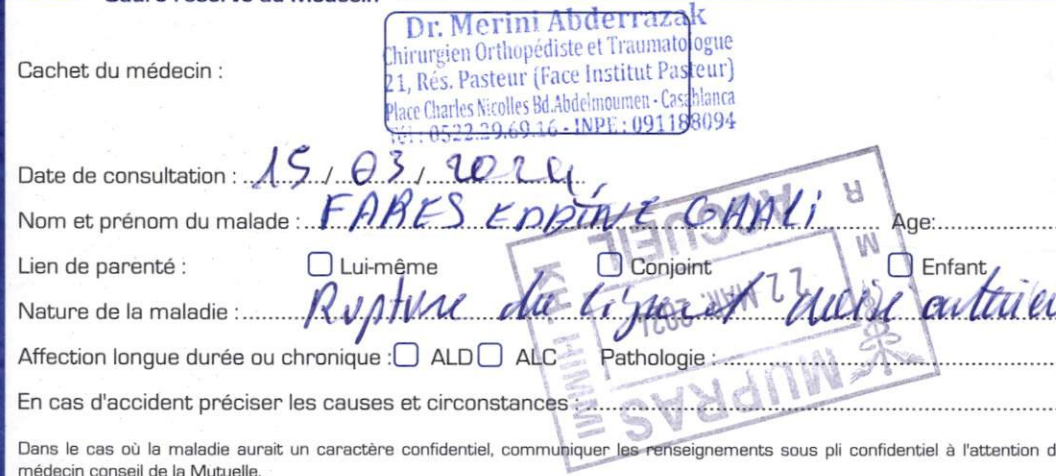 Cadre réservé au Médecin
Dr. Merini Abderrazak
Chirurgien Orthopédiste et Traumatologue
21, Rés. Pasteur (Face Institut Pasteur)
Place Charles Nicolles Bd.Abdelmoumen - Casablanca
Tél : 0522.29.69.16 - INPE : 091188094
Cachet du médecin :
Date de consultation : 15 / 03 / 2024
Nom et prénom du malade : FARES EDDINE GHALI Age:
Lien de parenté : Lui-même Conjoint Enfant
Nature de la maladie : Rupture du ligament croisé antérieur
Affection longue durée ou chronique : ALD ALC Pathologie :
En cas d'accident préciser les causes et circonstances :
Dans le cas où la maladie aurait un caractère confidentiel, communiquer les renseignements sous pli confidentiel à l'attention d
médecin conseil de la Mutuelle.
MUPRAS
22 MAR. 2024
ACCUEIL